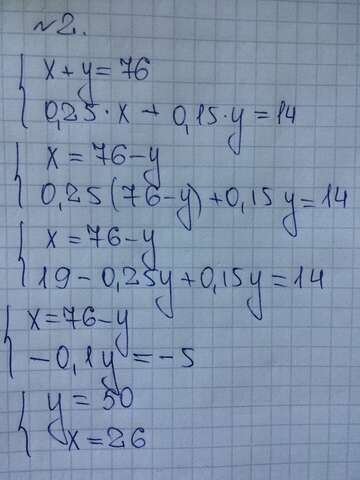 №2.
x + y = 76
0,25 · x + 0,15 · y = 14
x = 76 - y
0,25(76 - y) + 0,15 y = 14
x = 76 - y
19 - 0,25y + 0,15y = 14
x = 76 - y
- 0,1y = - 5
y = 50
x = 26